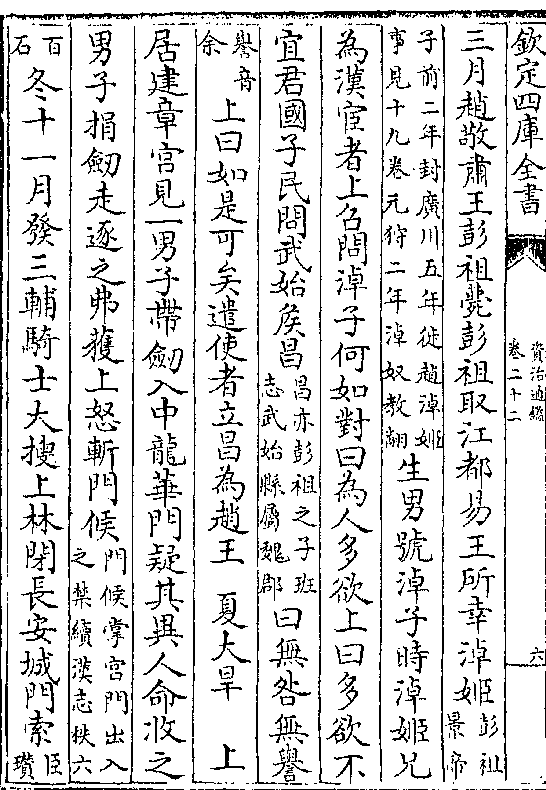 欽定四庫全書
資治通鑑
卷二十二
六
三月趙敬肅王彭祖薨彭祖取江都易王所幸淖姬彭祖景帝
子前二年封廣川五年徙趙淖姬事見十九卷元狩二年淖奴教翻生男號淖子時淖姬兄
為漢宦者上召問淖子何如對曰為人多欲上曰多欲不
宜君國子民問武始侯昌昌亦彭祖之子班志武始縣屬魏郡曰無咎無譽
譽音余上曰如是可矣遣使者立昌為趙王　夏大旱　上
居建章宮見一男子帶劒入中龍華門疑其異人命收之
男子捐劒走逐之弗獲上怒斬門候門候掌宮門出入之禁續漢志秩六
百石冬十一月發三輔騎士大搜上林閉長安城門索臣瓚